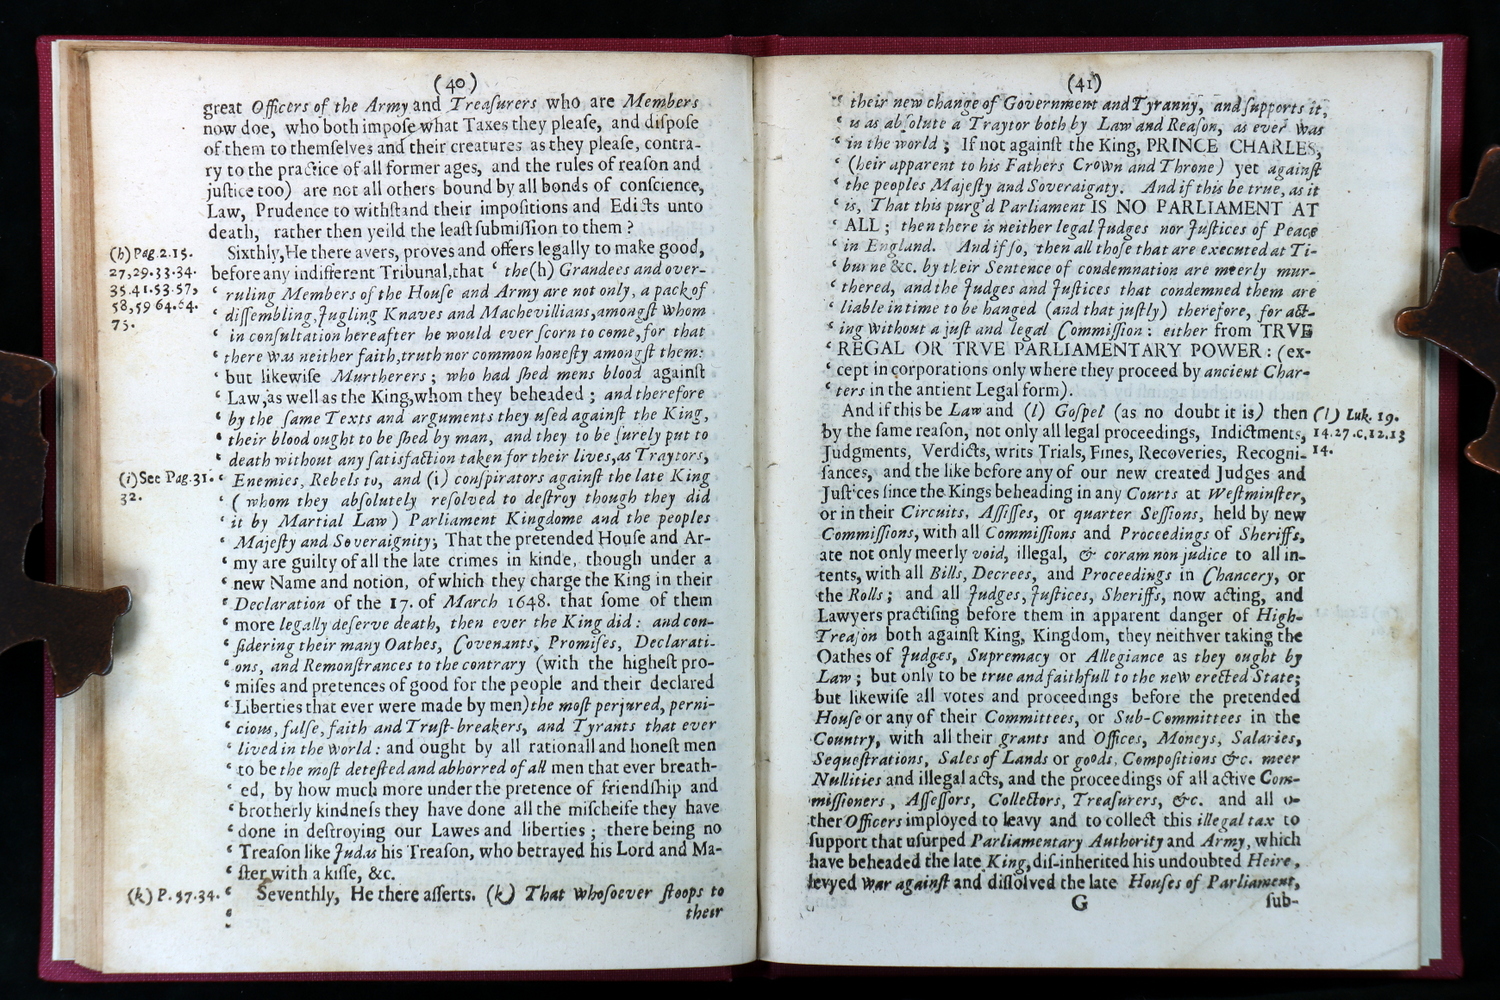 (40)
great Officers of the Army and Treaſurers who are Members
now doe, who both impoſe what Taxes they pleaſe, and diſpoſe
of them to themſelves and their creatures as they pleaſe, contra-
ry to the practice of all former ages, and the rules of reaſon and
juſtice too) are not all others bound by all bonds of conſcience,
Law, Prudence to withſtand their impoſitions and Edicts unto
death, rather then yeild the leaſt ſubmiſſion to them?
Sixthly, He there avers, proves and offers legally to make good,
before any indifferent Tribunal, that ‘ the (h) Grandees and over-
‘ ruling Members of the Houſe and Army are not only, a pack of
‘ diſſembling, Jugling Knaves and Machevillians, amongſt whom
‘ in conſultation hereafter he would ever ſcorn to come, for that
‘ there was neither faith, truth nor common honeſty amongſt them:
‘ but likewiſe Murtherers; who had ſhed mens blood againſt
‘ Law, as well as the King, whom they beheaded; and therefore
‘ by the ſame Texts and arguments they uſed againſt the King,
‘ their blood ought to be ſhed by man, and they to be ſurely put to
‘ death without any ſatisfaction taken for their lives, as Traytors,
‘ Enemies, Rebels to, and (i) conſpirators againſt the late King
‘ ( whom they abſolutely reſolved to deſtroy though they did
‘ it by Martial Law ) Parliament Kingdome and the peoples
‘ Majeſty and Soveraignity; That the pretended Houſe and Ar-
‘ my are guilty of all the late crimes in kinde, though under a
‘ new Name and notion, of which they charge the King in their
‘ Declaration of the 17. of March 1648. that ſome of them
‘ more legally deſerve death, then ever the King did: and con-
‘ ſidering their many Oathes, Covenants, Promiſes, Declarati-
‘ ons, and Remonſtrances to the contrary (with the higheſt pro-
‘ miſes and pretences of good for the people and their declared
‘ Liberties that ever were made by men) the moſt perjured, perni-
‘ cious, falſe, faith and Truſt-breakers, and Tyrants that ever
‘ lived in the world: and ought by all rationall and honeſt men
‘ to be the moſt deteſted and abhorred of all men that ever breath-
‘ ed, by how much more under the pretence of friendſhip and
‘ brotherly kindneſs they have done all the miſcheife they have
‘ done in deſtroying our Lawes and liberties; there being no
‘ Treaſon like Judas his Treaſon, who betrayed his Lord and Ma-
‘ ſter with a kiſſe, &c.
‘ Seventhly, He there aſſerts. (k) That whoſoever ſtoops to
their
(h) Pag. 2.15.
27,29.33.34.
35.41.53.57,
58,59 64.64.
75.
(i) See Pag. 31.
32.
(k) P. 57.34.
(41)
‘ their new change of Government and Tyranny, and ſupports it,
‘ is as abſolute a Traytor both by Law and Reaſon, as ever was
‘ in the world; If not againſt the King, PRINCE CHARLES,
‘ (heir apparent to his Fathers Crown and Throne) yet againſt
‘ the peoples Majeſty and Soveraigaty. And if this be true, as it
‘ is, That this purg'd Parliament IS NO PARLIAMENT AT
‘ ALL; then there is neither legal Judges nor Juſtices of Peace
‘ in England. And if ſo, then all thoſe that are executed at Ti-
‘ burne &c. by their Sentence of condemnation are meerly mur-
‘ thered, and the Judges and Juſtices that condemned them are
‘ liable in time to be hanged (and that juſtly) therefore, for act-
‘ ing without a juſt and legal Commiſſion: either from TRVE
‘ REGAL OR TRVE PARLIAMENTARY POWER: (ex-
‘ cept in corporations only where they proceed by ancient Char-
‘ ters in the ancient Legal form).
And if this be Law and (l) Goſpel (as no doubt it is) then
by the ſame reaſon, not only all legal proceedings, Indictments,
Judgments, Verdicts, writs Trials, Fines, Recoveries, Recogni-
ſances, and the like before any of our new created Judges and
Juſtices ſince the Kings beheading in any Courts at Weſtminſter,
or in their Circuits, Aſſiſes, or quarter Seſſions, held by new
Commiſſions, with all Commiſſions and Proceedings of Sheriffs,
are not only meerly void, illegal, & coram non judice to all in-
tents, with all Bills, Decrees, and Proceedings in Chancery, or
the Rolls; and all Judges, Juſtices, Sheriffs, now acting, and
Lawyers practiſing before them in apparent danger of High-
Treaſon both againſt King, Kingdom, they neithver taking the
Oathes of Judges, Supremacy or Allegiance as they ought by
Law; but only to be true and faithfull to the new erected State;
but likewiſe all votes and proceedings before the pretended
Houſe or any of their Committees, or Sub-Committees in the
Country, with all their grants and Offices, Moneys, Salaries,
Sequeſtrations, Sales of Lands or goods, Compoſitions &c. meer
Nullities and illegal acts, and the proceedings of all active Com-
miſſioners, Aſſeſſors, Collectors, Treaſurers, &c. and all o-
ther Officers imployed to leavy and to collect this illegal tax to
ſupport that uſurped Parliamentary Authority and Army, which
have beheaded the late King, diſ-inherited his undoubted Heire,
levyed war againſt and diſſolved the late Houſes of Parliament,
G
ſub-
(l) Luk. 19.
14.27.c.12.13
14.